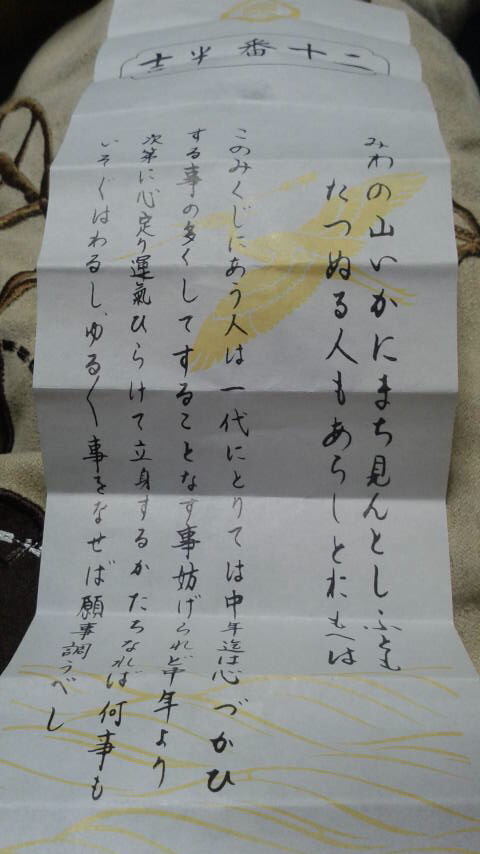 二十番半吉
みわの山いかにまち見んとしふとも
たつぬる人もあらしとおもへは
このみくじにあう人は一代にとりては中年迄は心づかひ
する事の多くしてすることなす事妨げられど中年より
次第に心定り運氣ひらけて立身するかたちなれば何事も
いそぐはわるし、ゆる〳〵事をなせば願事調うべし